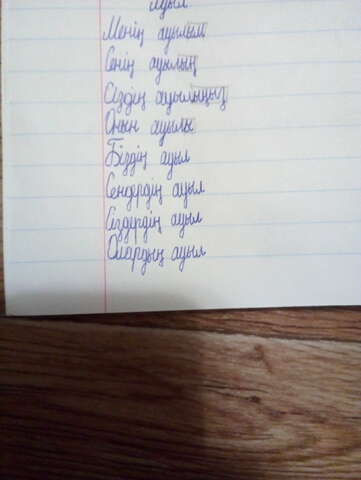 Ауыл
Менің ауылым
Сенің ауылың
Сіздің ауылыңыз
Оның ауылы
Біздің ауыл
Сендердің ауыл
Сіздердің ауыл
Олардың ауыл